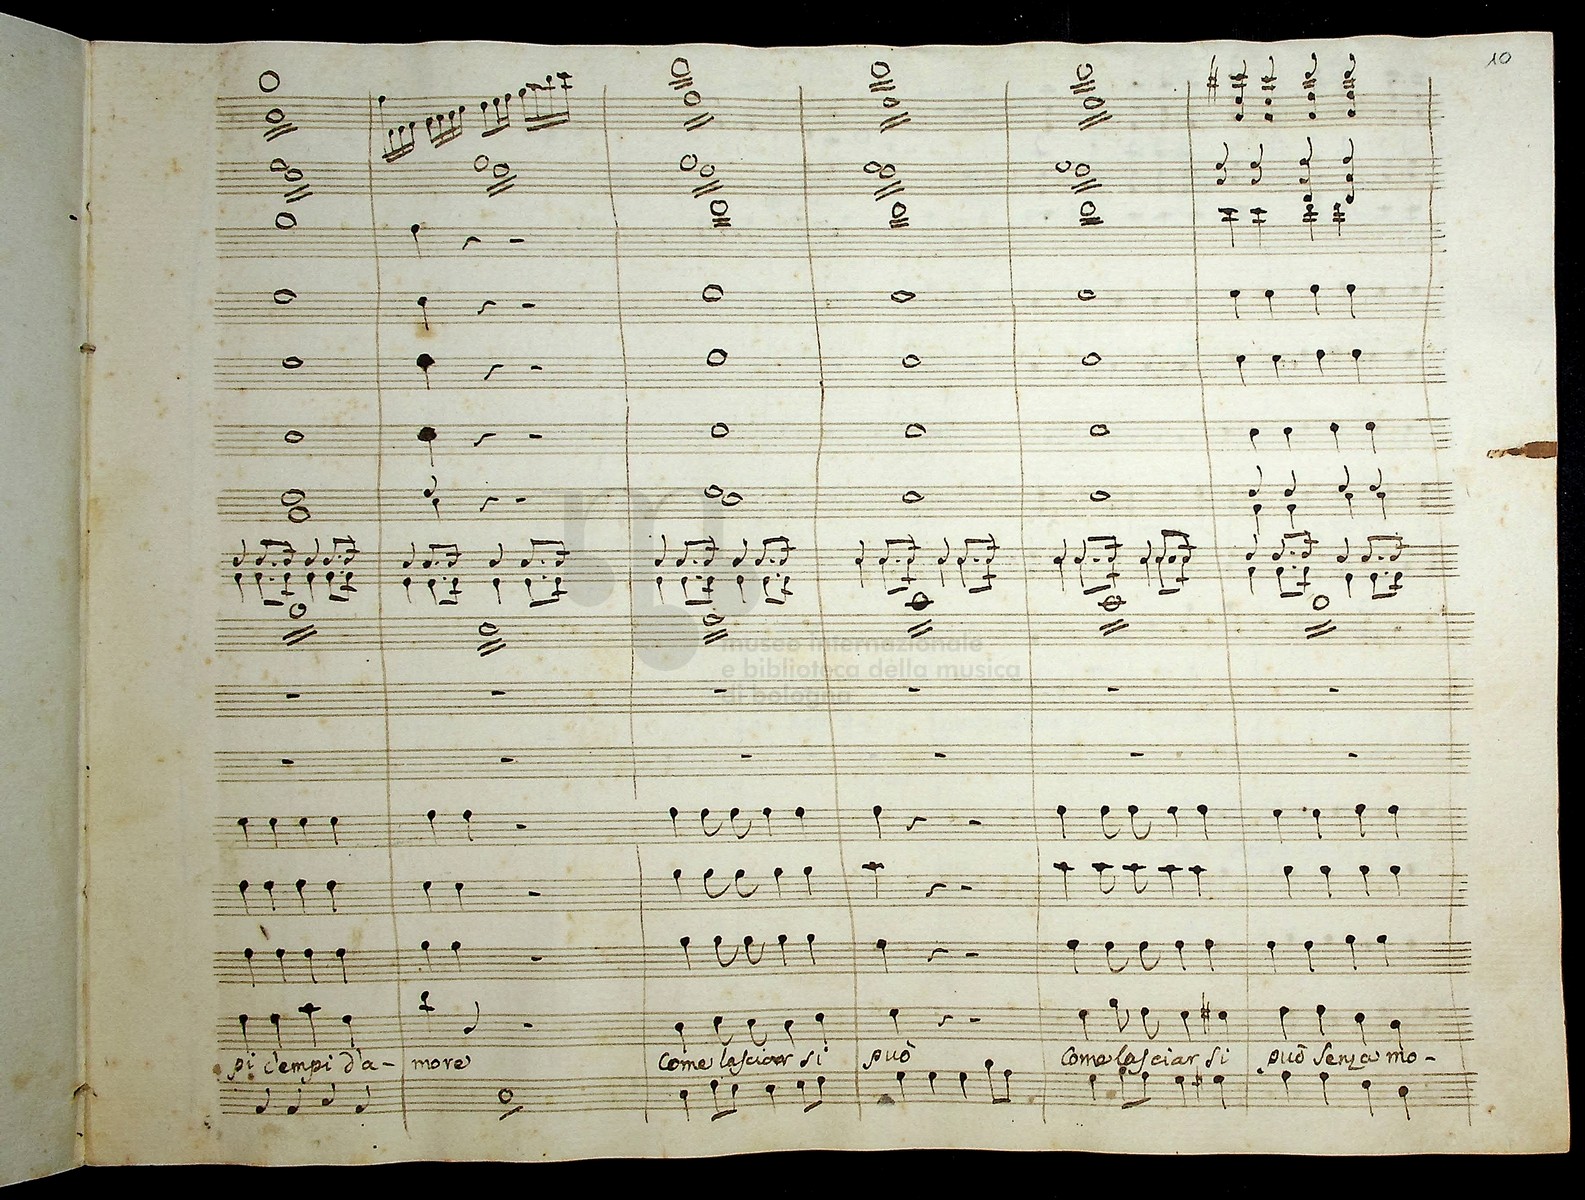 10
museo internazionale
e biblioteca della musica
di bologna
pi c'empi d'a- more Come lasciar si può Come lasciar si può senza mo-